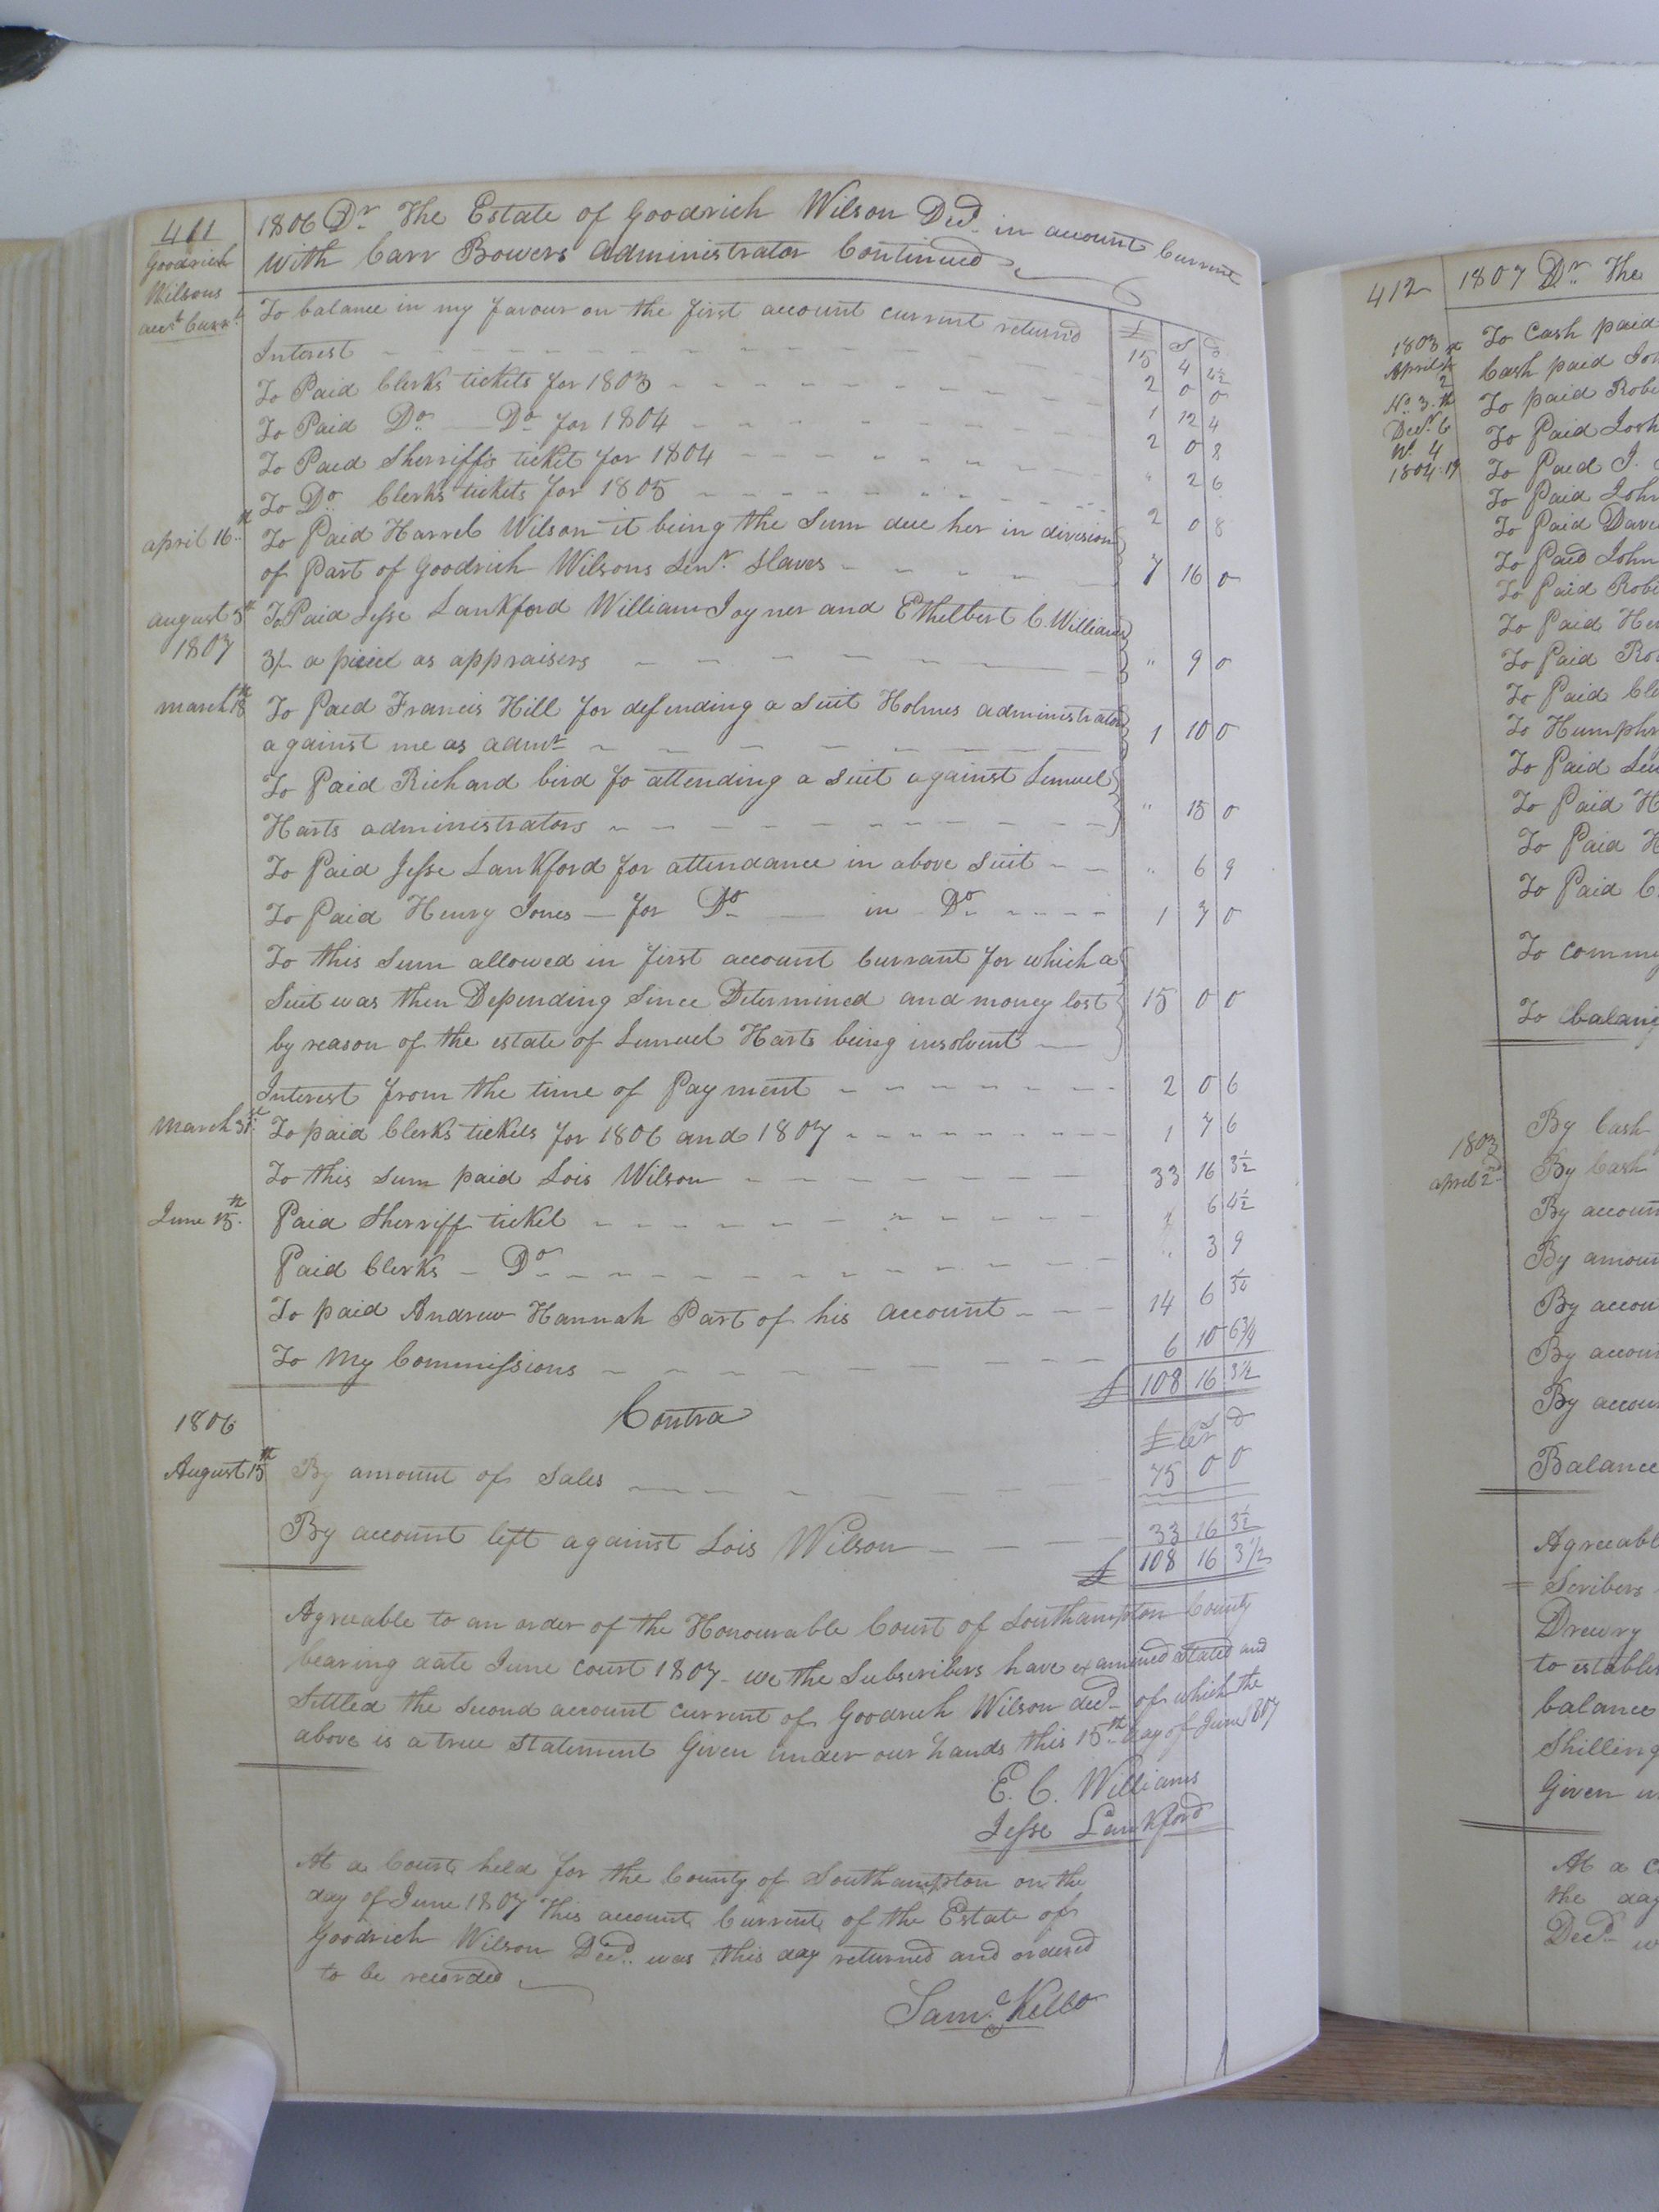 411
Goodrich
Wilsons
acct. Currt.
1806 Dr. The Estate of Goodrich Wilson Decd. in account Current
with Carr Bowers administrator Continued
£ S D
To balance in my favour on the first account current returnd 15 4 4½
Interest 2 0 0
To Paid Clerks tickets for 1803 1 12 4
To Paid Do. Do. for 1804 2 0 8
To Paid Sherriffs ticket for 1804 " 2 6
To Do. Clerks tickets for 1805 2 0 8
april 16th To Paid Harrel Wilson it being the Sum due her in division
of Part of Goodrich Wilsons Senr. Slaves 7 16 0
august 5th To Paid Jesse Lankford William Joyner and Ethelbert C. Williams
1807 3/ a pieice as appraisers " 9 0
march 18th To Paid Francis Hill for defending a Suit Holmes administrator
against me as admr. 1 10 0
To Paid Richard bird fo attending a Suit against Lemuel
Harts administrators " 15 0
To Paid Jesse Lankford for attendance in above Suit " 6 9
To Paid Henry Jones for Do. in Do. 1 7 0
To this Sum allowed in first account Currant for which a
Suit was then Depending Since Determined and money lost
by reason of the estate of Lemuel Harts being insolvent 15 0 0
Interest from the time of Payment 2 0 6
March 31st To paid Clerks tickets for 1806 and 1807 1 7 6
To this Sum paid Lois Wilson 33 16 3½
June 15th Paid Sherriff ticket " 6 4½
Paid Clerks Do. " 3 9
To paid Andrew Hannah Part of his account 14 6
To My Commissions 6 10 6¾
£ 108 16 3½
1806 Contra
£ Cr S D
August 15th By amount of Sales 75 0 0
By account left against Lois Wilson 33 16 3½
£ 108 16 3½
Agreeable to an order of the Honourable Court of Southampton County
bearing date June Court 1807 we the Subscribers have examined Stated and
Settled the Second account current of Goodrich Wilson decd. of which the
above is a true Statement Given under our hands this 15th day of June 1807
E. C. Williams
Jesse Lankford
At a Court held for the County of Southampton on the
day of June 1807 This account Current of the Estate of
Goodrich Wilson Decd. was this day returned and ordered
to be recorded
Saml. Kello
412 1807 Dr. The
1803
April To Cash paid
2 Cash paid Joh
No. 3. th To paid Robe
Decr. 6 To Paid
4 To Paid J.
1804 19 To Paid John
To Paid Dav
To Paid John
To Paid Robe
To Paid He
To Paid Ro
To Paid Cle
To Humph
To Paid
To Paid H
To Paid H
To Paid C
To comm
To balanc
1803 By Cash
april 2nd By Cash
By accoun
By amou
By accou
By accoun
By accou
Balance
Agreeabl
Scribers
Drewry
to establis
balance
Shilling
Given u
At a C
the day
Decd. w